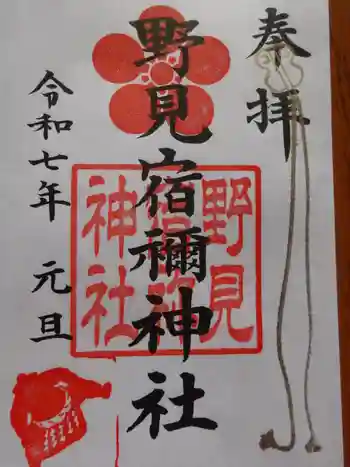 奉拝
野見宿禰神社
野見
宿禰
神社
令和七年 元旦